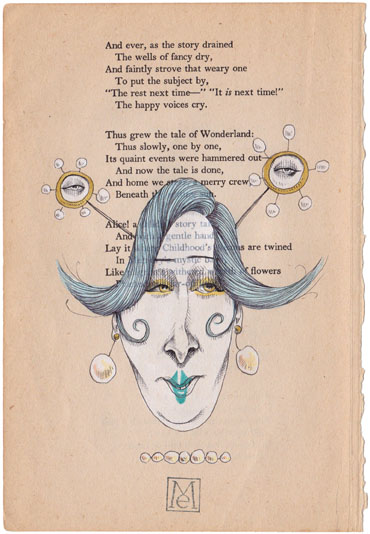 And ever, as the story drained
The wells of fancy dry,
And faintly strove that weary one
To put the subject by,
"The rest next time—" "It is next time!"
The happy voices cry.
Thus grew the tale of Wonderland:
Thus slowly, one by one,
Its quaint events were hammered out—
And now the tale is done,
And home we merry crew,
Beneath
Alice! a story
And gentle hand
Lay it Childhood's are twined
In mystic
Like of flowers
ME